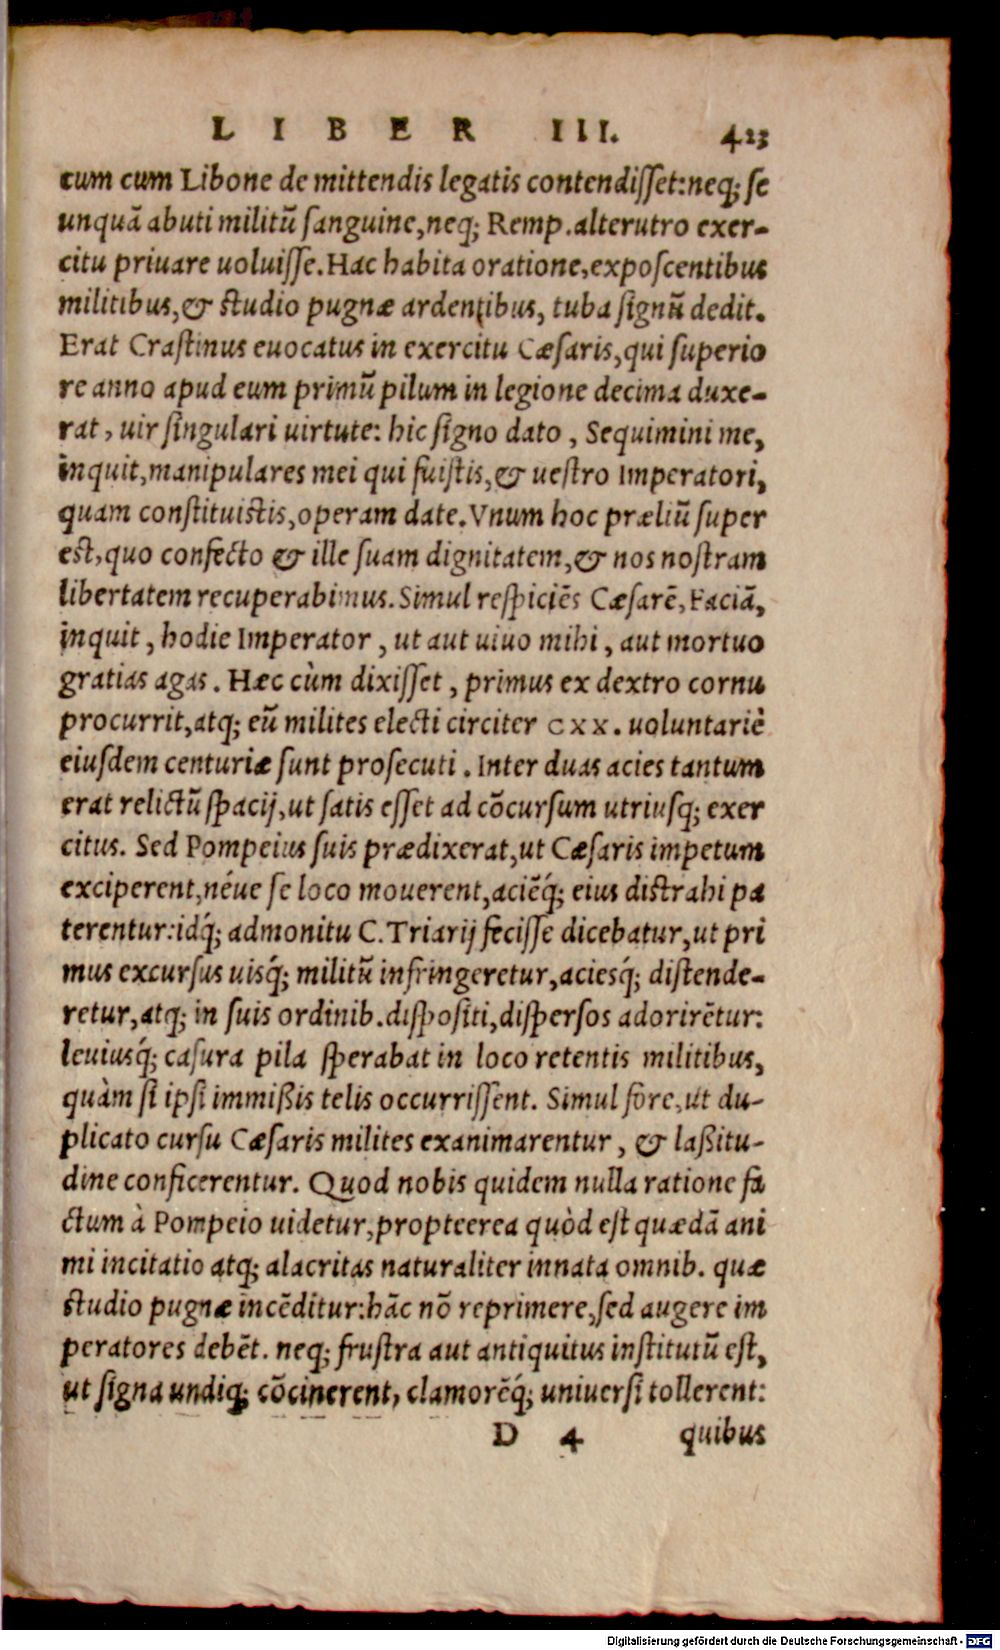 LIBER III. 423
cum cum Libone de mittendis legatis contendisset: neq; se
unquā abuti militū sanguine, neq; Remp. alterutro exer-
citu priuare uoluisse. Hac habita oratione, exposcentibus
militibus, & studio pugnæ ardentibus, tuba signū dedit.
Erat Crastinus euocatus in exercitu Cæsaris, qui superio
re anno apud eum primū pilum in legione decima duxe-
rat, uir singulari uirtute: hic signo dato, Sequimini me,
inquit, manipulares mei qui fuistis, & uestro Imperatori,
quam constituistis, operam date. Vnum hoc præliū super
est, quo confecto & ille suam dignitatem, & nos nostram
libertatem recuperabimus. Simul respiciēs Cæsarē, Faciā,
inquit, hodie Imperator, ut aut uiuo mihi, aut mortuo
gratias agas. Hæc cùm dixisset, primus ex dextro cornu
procurrit, atq; eū milites electi circiter CXX. uoluntariè
eiusdem centuriæ sunt prosecuti. Inter duas acies tantum
erat relictū spacij, ut satis esset ad cōcursum utriusq; exer
citus. Sed Pompeius suis prædixerat, ut Cæsaris impetum
exciperent, néue se loco mouerent, aciēq́; eius distrahi pa
terentur: idq́; admonitu C. Triarij fecisse dicebatur, ut pri
mus excursus uisq́; militū infringeretur, aciesq́; distende-
retur, atq; in suis ordinib. dispositi, dispersos adorirētur:
leuiusq́; casura pila sperabat in loco retentis militibus,
quàm si ipsi immißis telis occurrissent. Simul fore, ut du-
plicato cursu Cæsaris milites exanimarentur, & laßitu-
dine conficerentur. Quod nobis quidem nulla ratione fa
ctum à Pompeio uidetur, propteerea quòd est quædā ani
mi incitatio atq; alacritas naturaliter innata omnib. quæ
studio pugnæ incēditur: hāc nō reprimere, sed augere im
peratores debēt. neq; frustra aut antiquitus institutū est,
ut signa undiq; cōcinerent, clamorēq́; uniuersi tollerent:
D 4 quibus
Digitalisierung gefördert durch die Deutsche Forschungsgemeinschaft - DFG